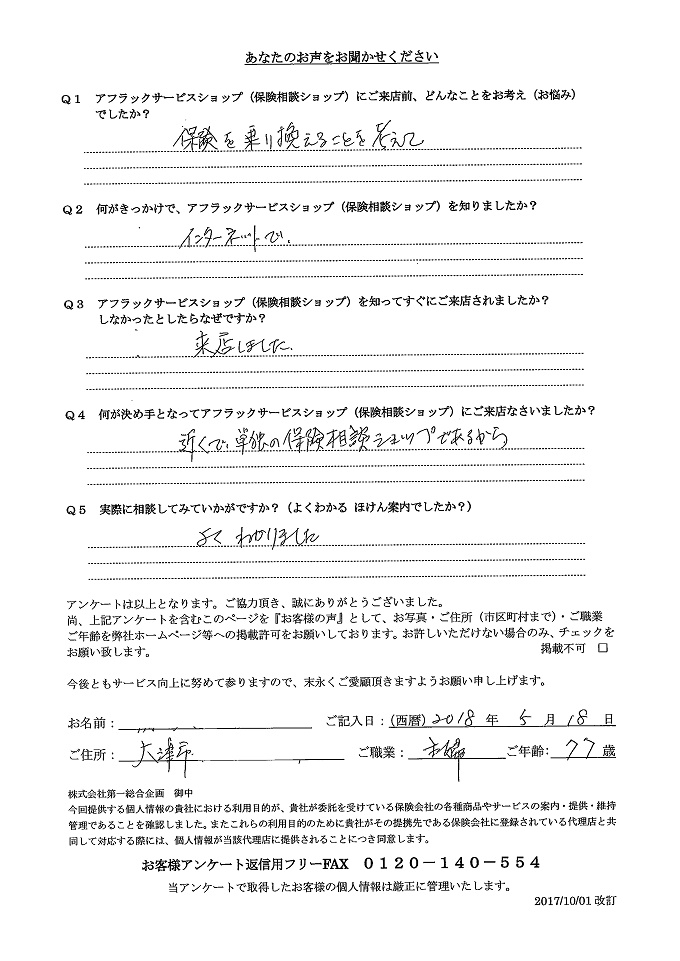 あなたのお声をお聞かせください
Q1 アフラックサービスショップ(保険相談ショップ)にご来店前、どんなことをお考え(お悩み)
でしたか?
保険を乗り換えることを考えて
Q2 何がきっかけで、アフラックサービスショップ(保険相談ショップ)を知りましたか?
インターネットで.
Q3 アフラックサービスショップ(保険相談ショップ)を知ってすぐにご来店されましたか?
しなかったとしたらなぜですか?
来店しました.
Q4 何が決め手となってアフラックサービスショップ(保険相談ショップ)にご来店なさいましたか?
近くで、単独の保険相談ショップであるから
Q5 実際に相談してみていかがですか?(よくわかる ほけん案内でしたか?)
よく わかりました
アンケートは以上となります。ご協力頂き、誠にありがとうございました。
尚、上記アンケートを含むこのページを『お客様の声』として、お写真・ご住所(市区町村まで)・ご職業
ご年齢を弊社ホームページ等への掲載許可をお願いしております。お許しいただけない場合のみ、チェックを
お願い致します。 掲載不可 □
今後ともサービス向上に努めて参りますので、末永くご愛顧頂きますようお願い申し上げます。
お名前: ご記入日:(西暦)2018 年 5 月 18 日
ご住所: 大津市 ご職業: 主婦 ご年齢: 77 歳
株式会社第一総合企画 御中
今回提供する個人情報の貴社における利用目的が、貴社が委託を受けている保険会社の各種商品やサービスの案内・提供・維持
管理であることを確認しました。またこれらの利用目的のために貴社がその提携先である保険会社に登録されている代理店と共
同して対応する際には、個人情報が当該代理店に提供されることにつき同意します。
お客様アンケート返信用フリーFAX 0120-140-554
当アンケートで取得したお客様の個人情報は厳正に管理いたします。
2017/10/01 改訂